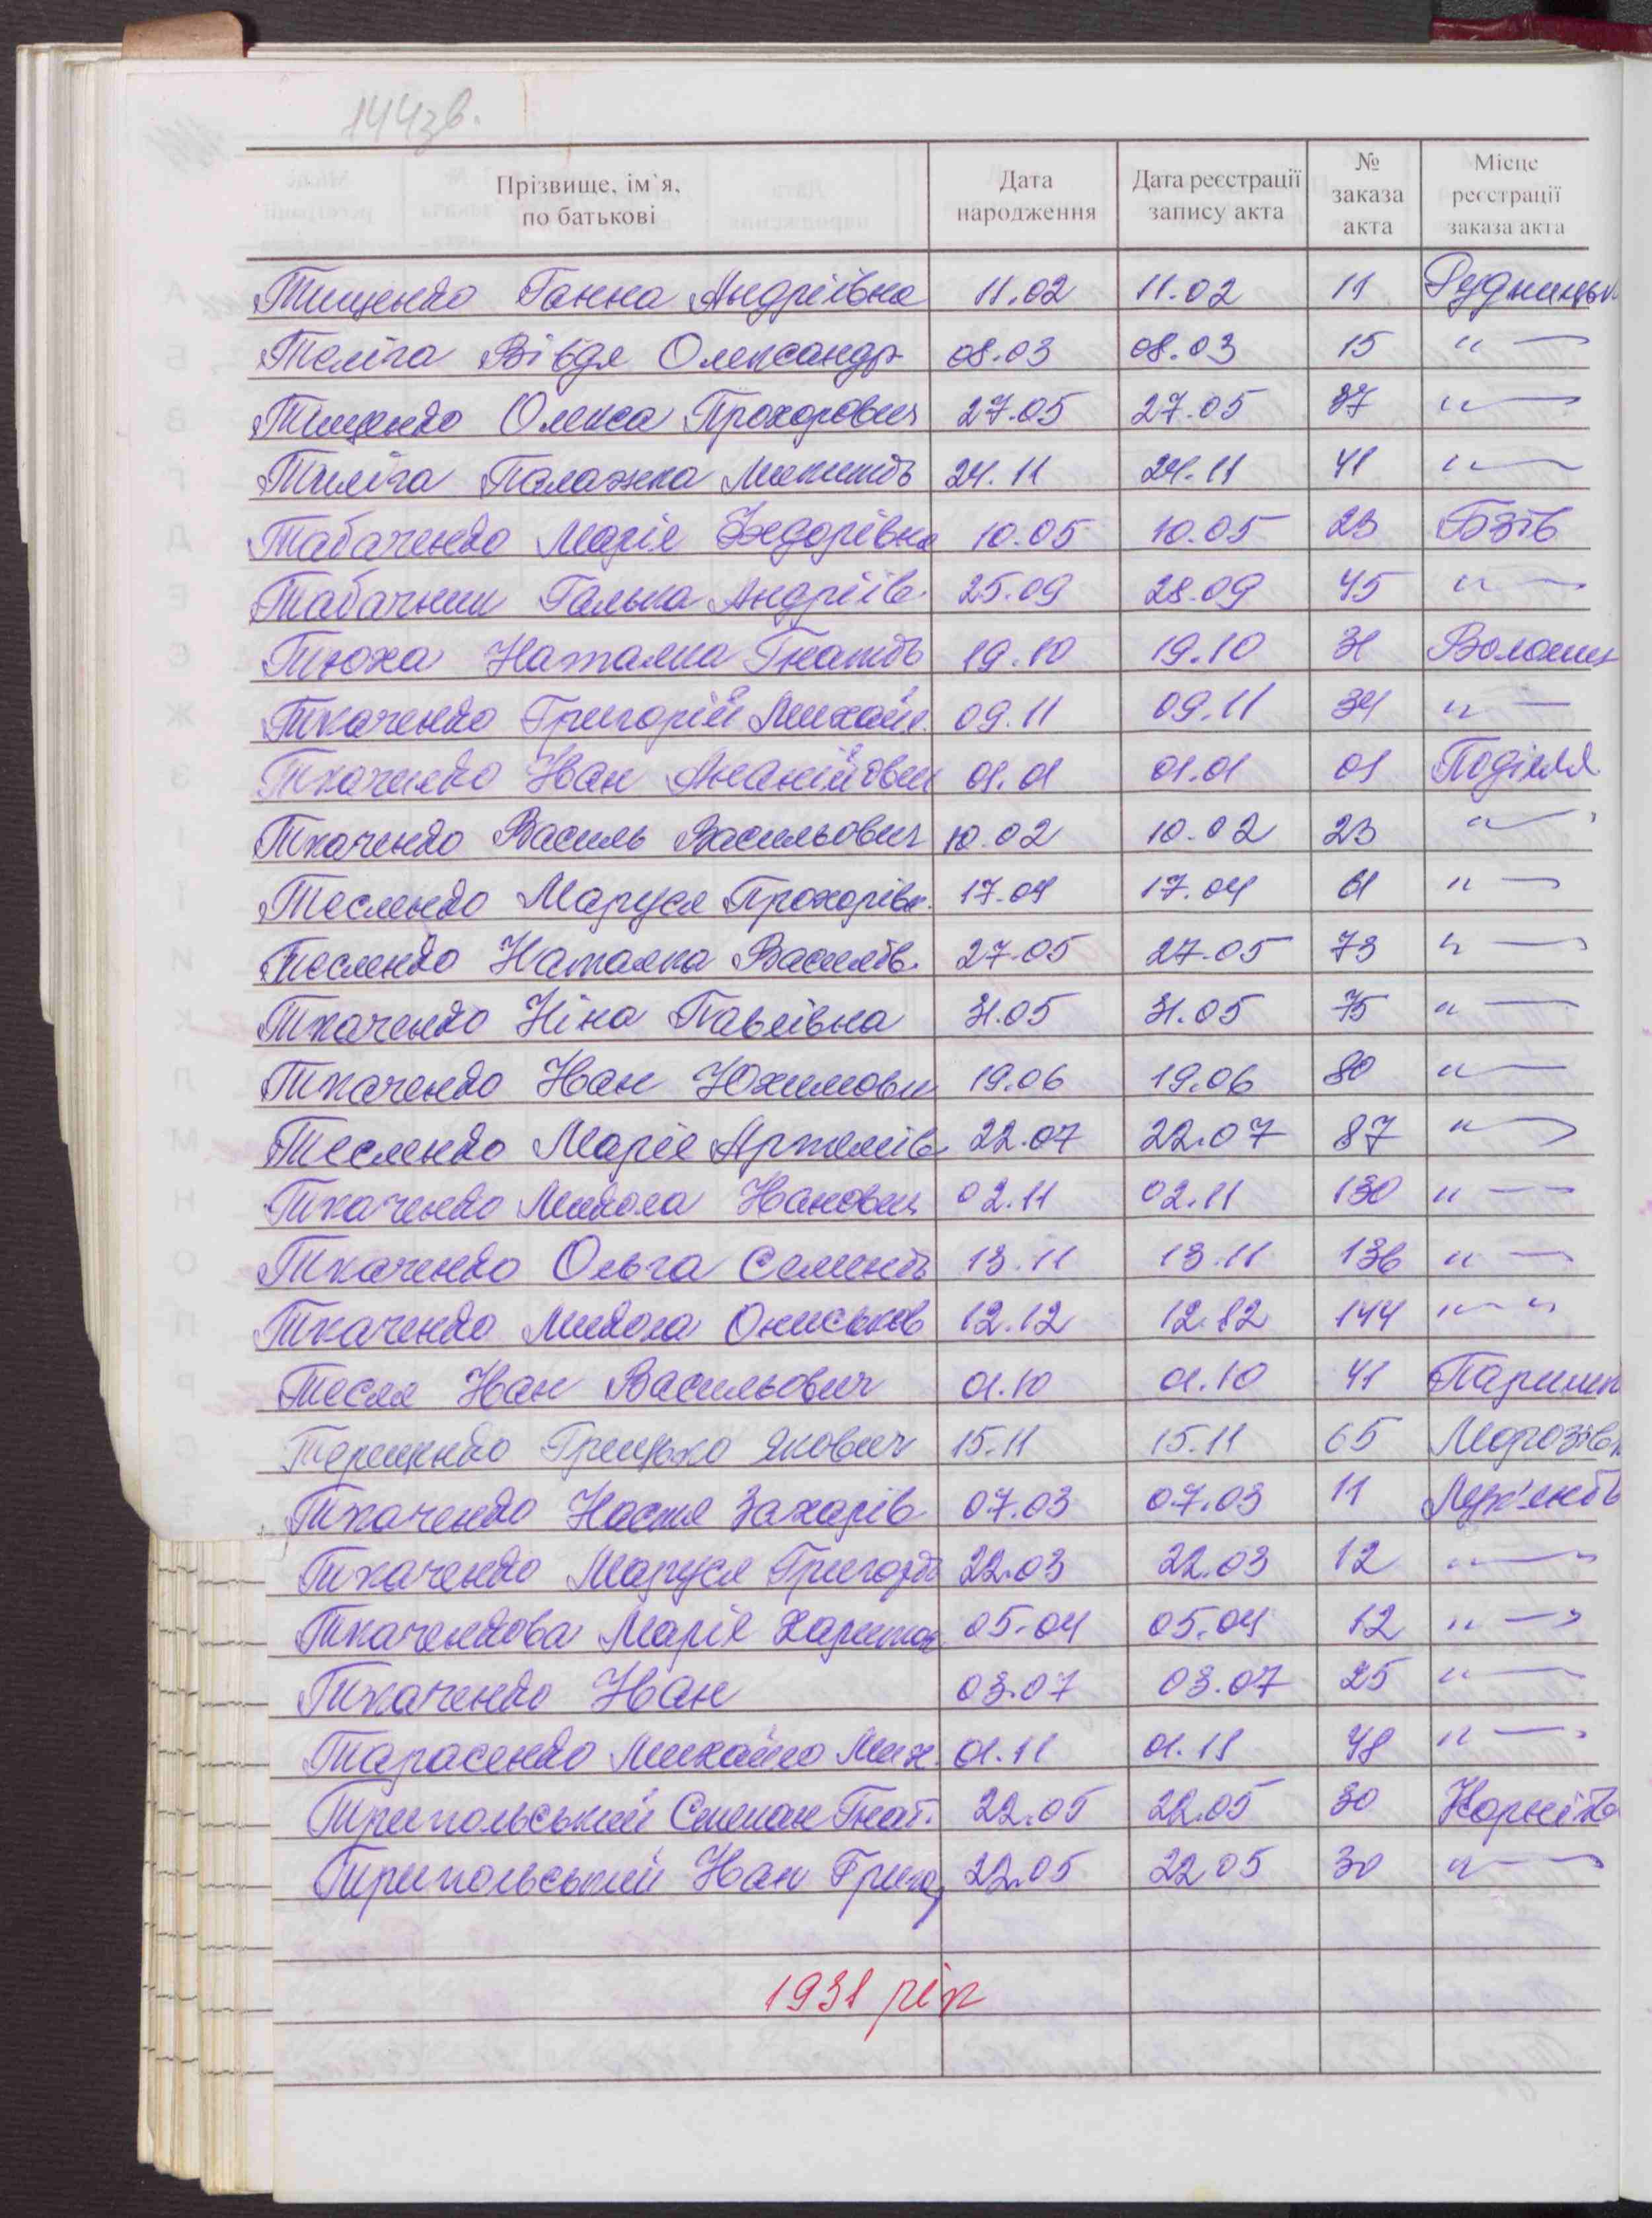 144зв.
Прізвище, ім`я, по батькові Дата народження Дата реєстрації запису акта № заказа акта Місце реєстрації заказа акта
Тищенко Ганна Андріївна 11.02 11.02 11 Рудницьк
Теліга Вівдя Олександр 08.03 08.03 15 "—
Тищенко Олекса Прохорович 27.05 27.05 "—
Тиліга Палажка Микитів 24.11 24.11 41 "—
Табаченко Марія Федорівна 10.05 10.05 23 Бзів
Табачник Галька Андріїв. 25.09 28.09 45 "—
Тюха Наталка Гнатів 19.10 19.10 31 Волошин
Ткаченко Григорій Михайл. 09.11 09.11 34 "—
Ткаченко Іван Ананійович 01.01 01.01 01 Поділля
Ткаченко Василь Васильович 10.02 10.02 23 "—
Тесленко Маруся Прохорівн. 17.04 17.04 61 "—
Тесленко Наталка Василів. 27.05 27.05 73 "—
Ткаченко Ніна Павлівна 31.05 31.05 75 "—
Ткаченко Іван Юхимови 19.06 19.06 80 "—
Тесленко Марія Артемів 22.07 22.07 87 "—
Ткаченко Микола Іванович 02.11 02.11 130 "—
Ткаченко Ольга Семенів 13.11 13.11 136 "—
Ткаченко Микола Ониськов 12.12 12.12 144 "—"
Тесля Іван Васильович 01.10 01.10 41 Паришк
Терещенко Грицько Якович 15.11 15.11 65 Морозівк
Ткаченко Настя Захарів 07.03 07.03 11 Лук'янів
Ткаченко Маруся Григорів 22.03 22.03 12 "—
Ткаченкова Марія Харитон 05.04 05.04 12 "—
Ткаченко Іван 03.07 03.07 25 "—
Тарасенко Михайло Мих. 01.11 01.11 48 "—
Трипольський Степан Гнат. 22.05 22.05 30 Корніїв
Трипольський Іван Григор 22.05 22.05 30 "—
1931 рік